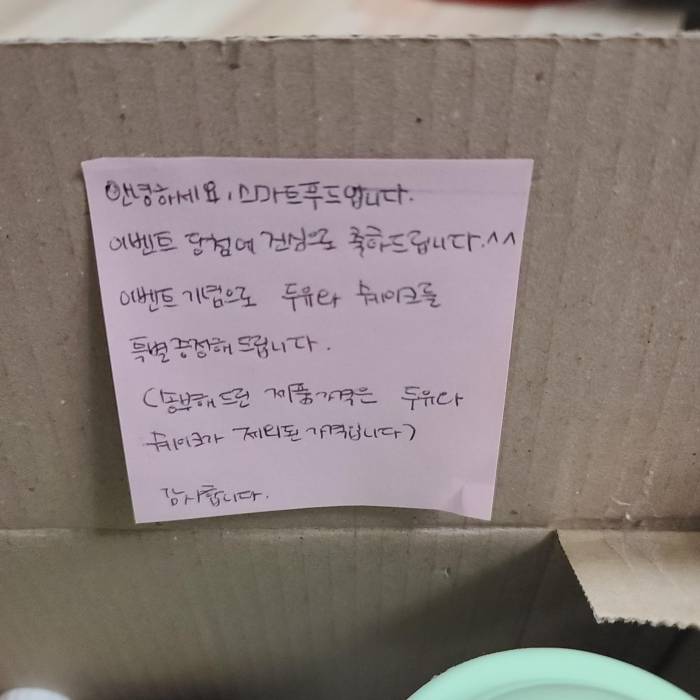 안녕하세요, 스마트푸드입니다.
이벤트 당첨에 진심으로 축하드립니다.^^
이벤트 기념으로 두유와 쉐이크를
특별증정해 드립니다.
(동봉해드린 제품가격은 두유와
쉐이크가 제외된 가격입니다)
감사합니다.